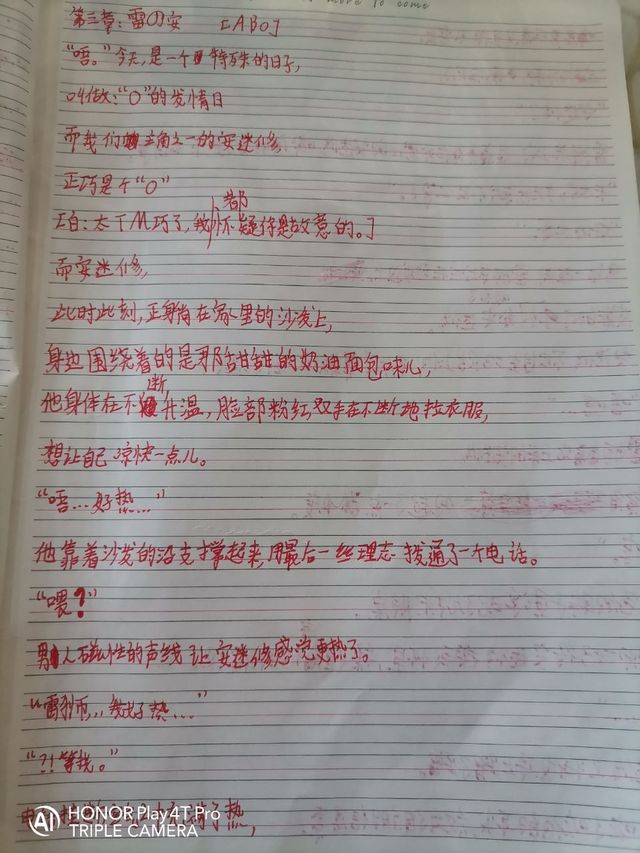 more to come
第三章:雷の安 [ABO]
“唔。”今天,是一个特殊的日子,
叫做:“O”的发情日
而我们主角之一的安迷修,
正巧是个“O”
[白:太TM巧了,我都怀疑你是故意的。]
而安迷修,
此时此刻,正躺在家里的沙发上,
身边围绕着的是那甜甜的奶油面包味儿,
他身体在不断升温,脸部粉红,双手在不断地拉衣服,
想让自己凉快一点儿。
“唔...好热...”
他靠着沙发的沿支撑起来,用最后一丝理志拨通了一个电话。
“喂?”
男人磁性的声线让安迷修感觉更热了。
“雷狮...我好热...”
“?!等我。”
热,
HONOR Play4T Pro
AI TRIPLE CAMERA